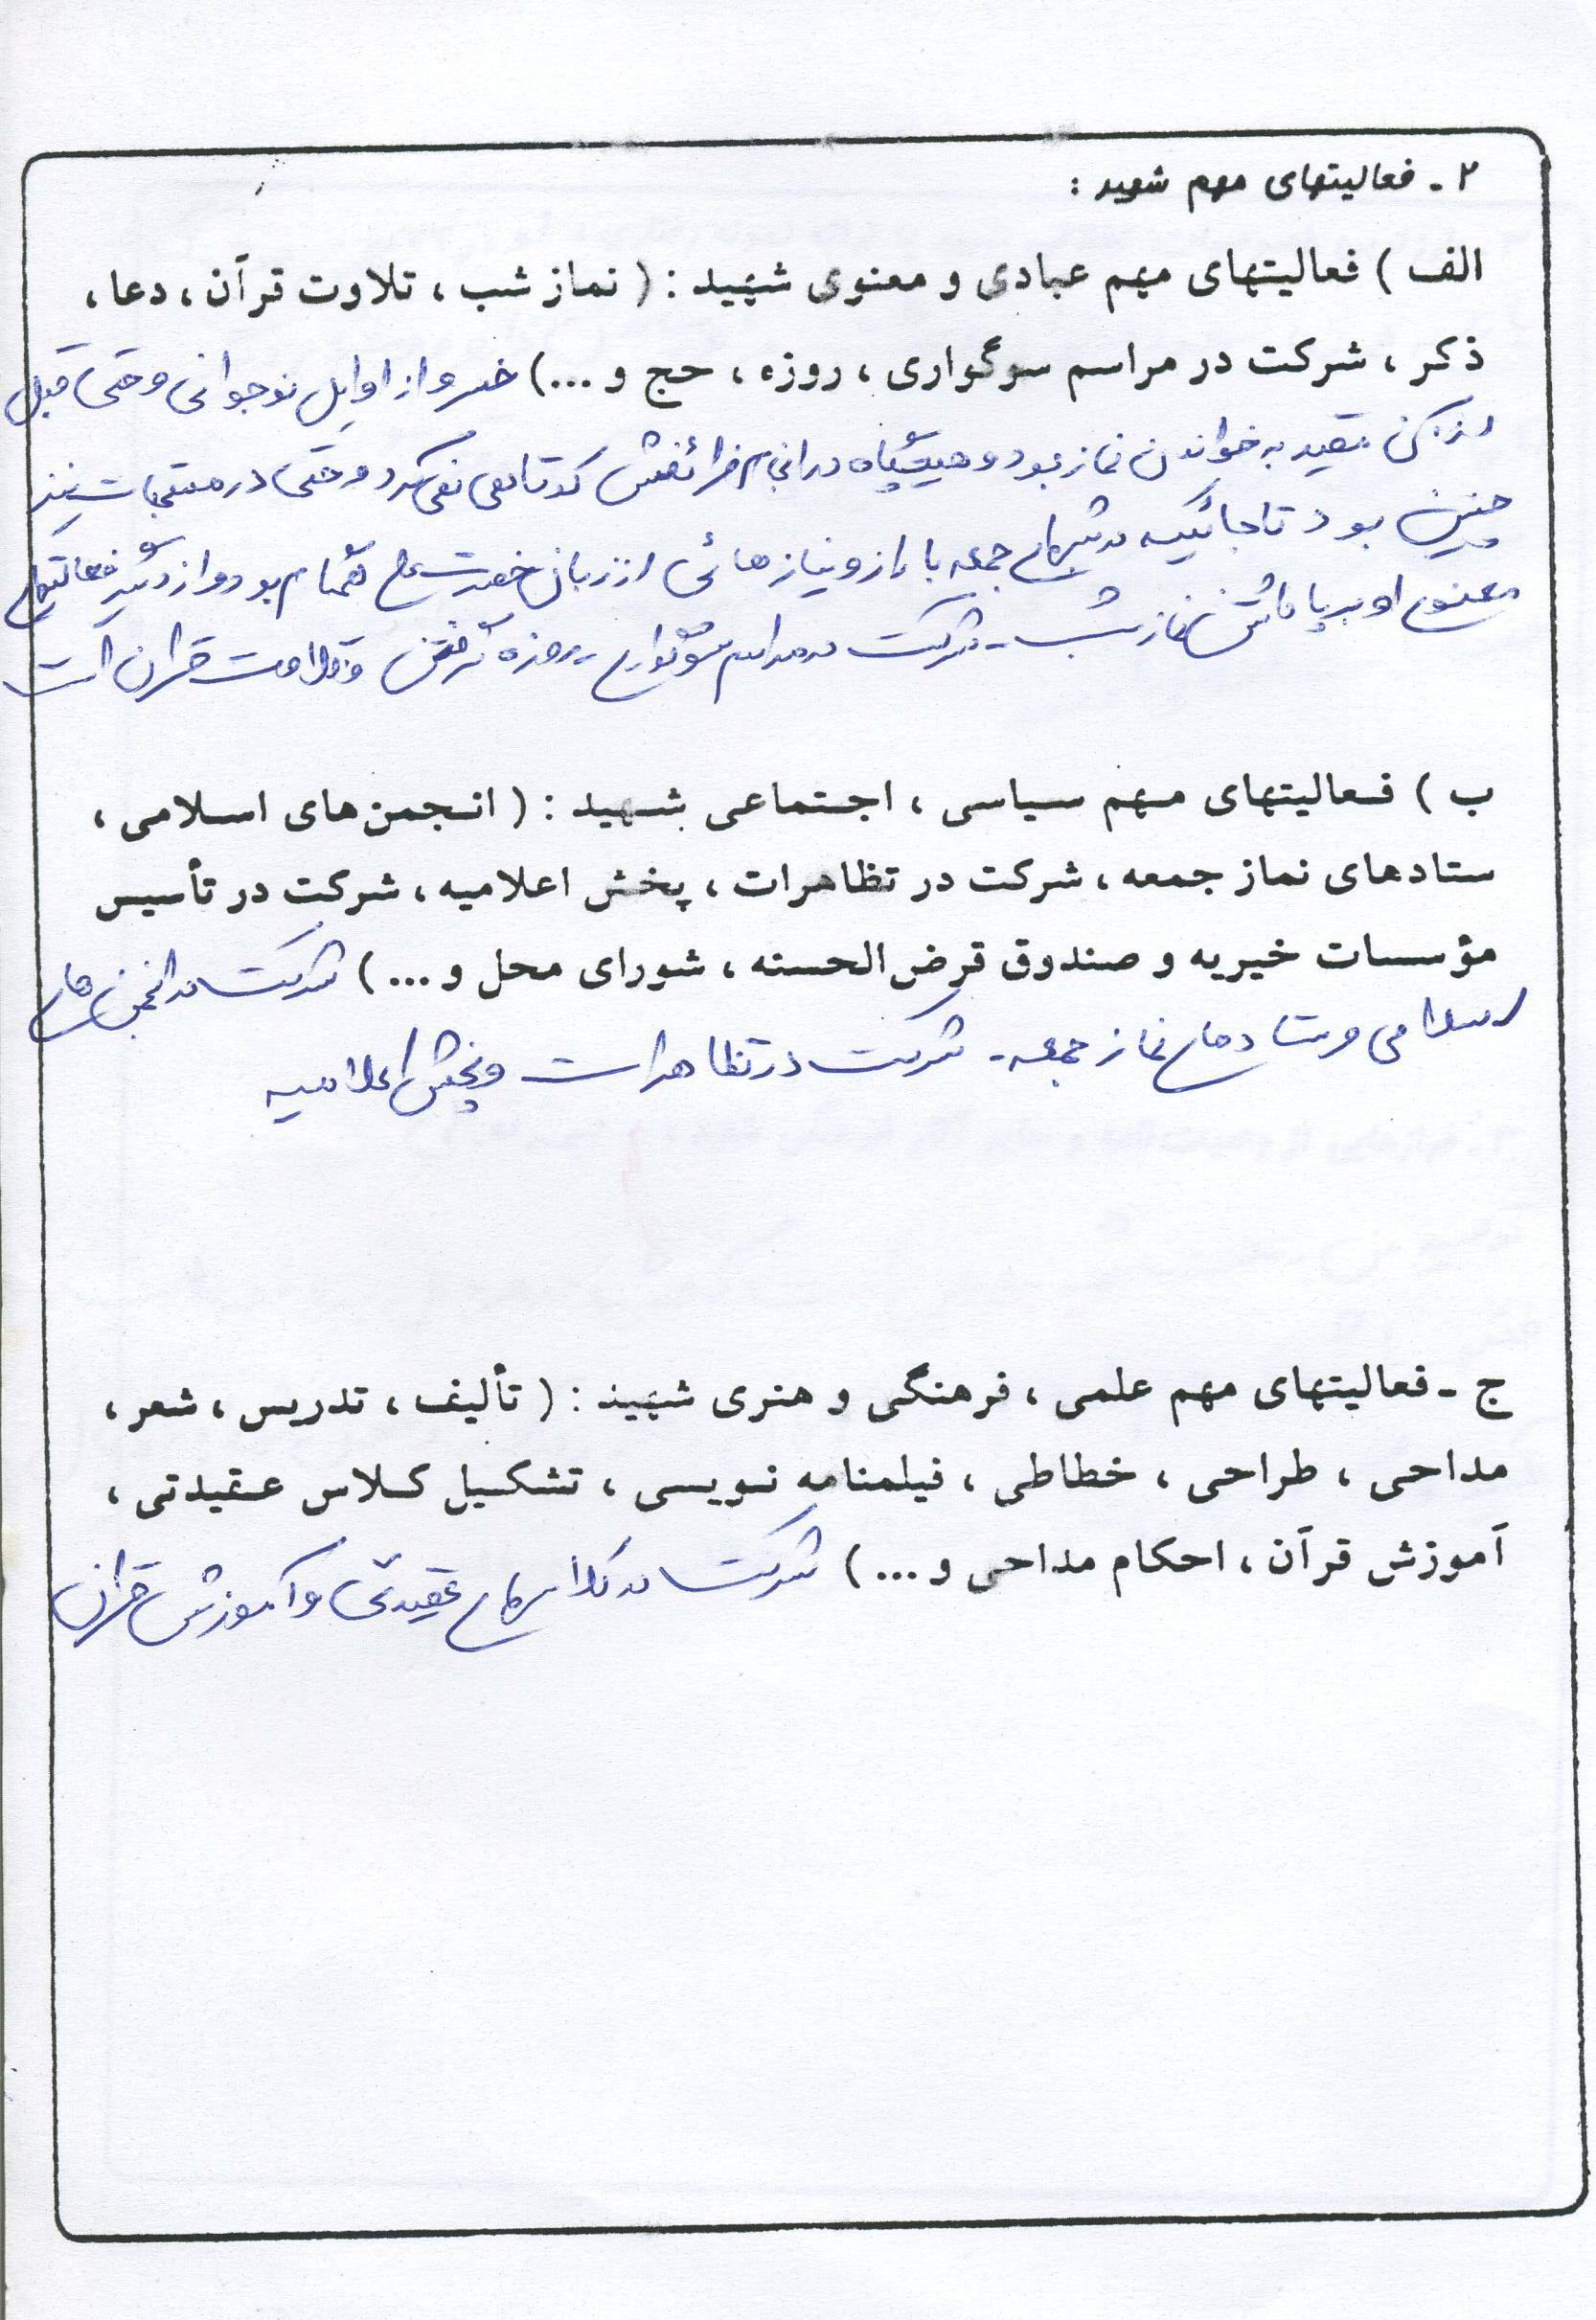 ۲ - فعالیتهای مهم شهید :
الف ) فعالیتهای مهم عبادی و معنوی شهید : ( نماز شب ، تلاوت قرآن ، دعا ،
ذکر ، شرکت در مراسم سوگواری ، روزه ، حج و ...) خسرو از اوایل نوجوانی و حتی قبل
از آن مقید به خواندن نماز بود و هیچگاه در انجام فرائضش کوتاهی نمی‌کرد و حتی در مستحبات نیز
چنین بود تا جائیکه در شبهای جمعه با راز و نیازهائی از زبان حضرت علی همگام بود و از دیگر فعالیتهای
معنوی او بر پا داشتن نماز شب - شرکت در مراسم سوگواری - روزه گرفتن و تلاوت قرآن است
ب ) فعالیتهای مهم سیاسی ، اجتماعی شهید : ( انجمن‌های اسلامی ،
ستادهای نماز جمعه ، شرکت در تظاهرات ، پخش اعلامیه ، شرکت در تأسیس
مؤسسات خیریه و صندوق قرض‌الحسنه ، شورای محل و ... ) شرکت در انجمن های
اسلامی و ستادهای نماز جمعه - شرکت در تظاهرات و پخش اعلامیه
ج - فعالیتهای مهم علمی ، فرهنگی و هنری شهید : ( تألیف ، تدریس ، شعر ،
مداحی ، طراحی ، خطاطی ، فیلمنامه نویسی ، تشکیل کلاس عقیدتی ،
آموزش قرآن ، احکام مداحی و ... ) شرکت در کلاسهای عقیدتی و آموزش قرآن